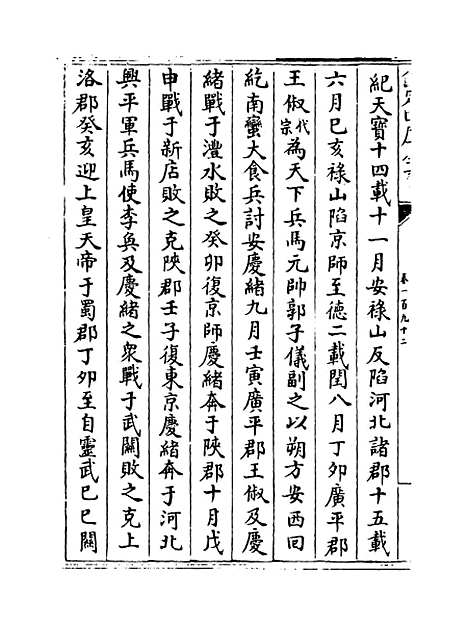 欽定四庫全書
卷一百九十二
紀天寶十四載十一月安祿山反陷河北諸郡十五載
六月己亥祿山陷京師至德二載閏八月丁卯廣平郡
王俶代宗為天下兵馬元帥郭子儀副之以朔方安西回
紇南蠻大食兵討安慶緒九月壬寅廣平郡王俶及慶
緒戰于灃水敗之癸卯復京師慶緒奔于陜郡十月戊
申戰于新店敗之克陜郡壬子復東京慶緒奔于河北
興平軍兵馬使李奐及慶緒之衆戰于武關敗之克上
洛郡癸亥迎上皇天帝于蜀郡丁卯至自靈武巳巳關